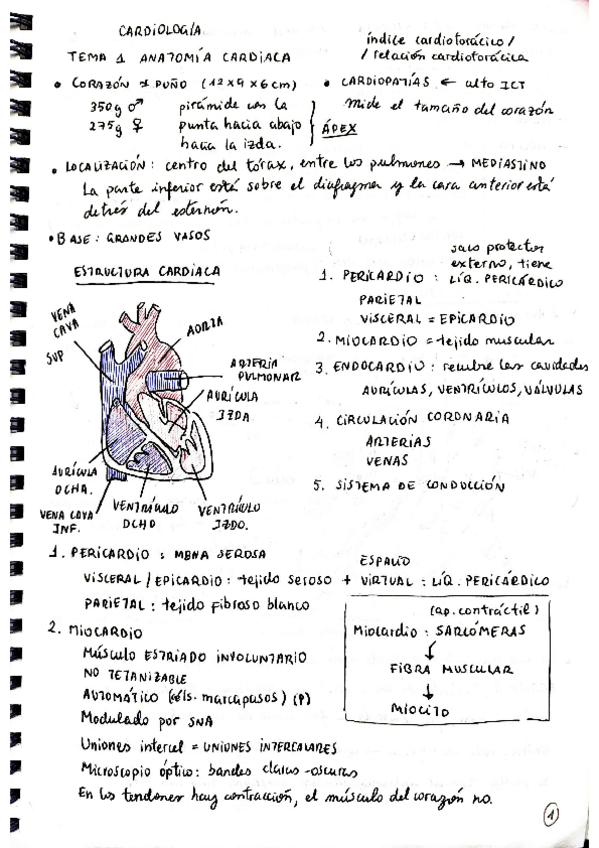 CARDIOLOGÍA
índice cardiotorácico /
/ relación cardiotorácica
TEMA 1 ANATOMÍA CARDIACA
• CORAZÓN ≠ PUÑO (12x9x6cm)
350g ♂ pirámide con la
275g ♀ punta hacia abajo
hacia la izda.
ÁPEX
• CARDIOPATÍAS ← alto ICT
mide el tamaño del corazón
• LOCALIZACIÓN: centro del tórax, entre los pulmones → MEDIASTINO
La parte inferior está sobre el diafragma y la cara anterior está
detrás del esternón.
• BASE: GRANDES VASOS
ESTRUCTURA CARDÍACA
VENA
CAVA
SUP
AORTA
ARTERIA
PULMONAR
AURÍCULA
IZDA.
AURÍCULA
DCHA.
VENA CAVA
INF.
VENTRÍCULO
DCHO
VENTRÍCULO
IZDO.
saco protector
externo, tiene
1. PERICARDIO: LÍQ. PERICÁRDICO
PARIETAL
VISCERAL = EPICARDIO
2. MIOCARDIO = tejido muscular
3. ENDOCARDIO: recubre las cavidades
AURÍCULAS, VENTRÍCULOS, VÁLVULAS
4. CIRCULACIÓN CORONARIA
ARTERIAS
VENAS
5. SISTEMA DE CONDUCCIÓN
1. PERICARDIO: MBNA SEROSA
ESPACIO
VISCERAL / EPICARDIO: tejido seroso + VIRTUAL: LÍQ. PERICÁRDICO
PARIETAL: tejido fibroso blanco
2. MIOCARDIO
MÚSCULO ESTRIADO INVOLUNTARIO
NO TETANIZABLE
AUTOMÁTICO (céls. marcapasos) (P)
Modulado por SNA
Uniones intercel = UNIONES INTERCALARES
Microscopio óptico: bandas claras-oscuras
En los tendones hay contracción, el músculo del corazón no.
(ap. contráctil)
Miocardio: SARCÓMERAS
↓
FIBRA MUSCULAR
↓
MIOCITO
1